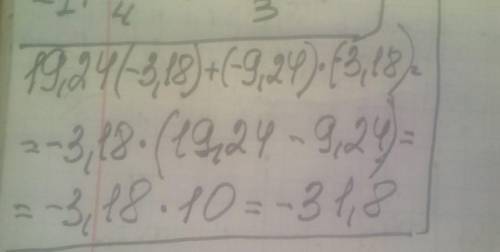 -1. 4 3
19,24(-3,18)+(-9,24)·(-3,18)=
=-3,18·(19,24-9,24)=
=-3,18·10=-31,8